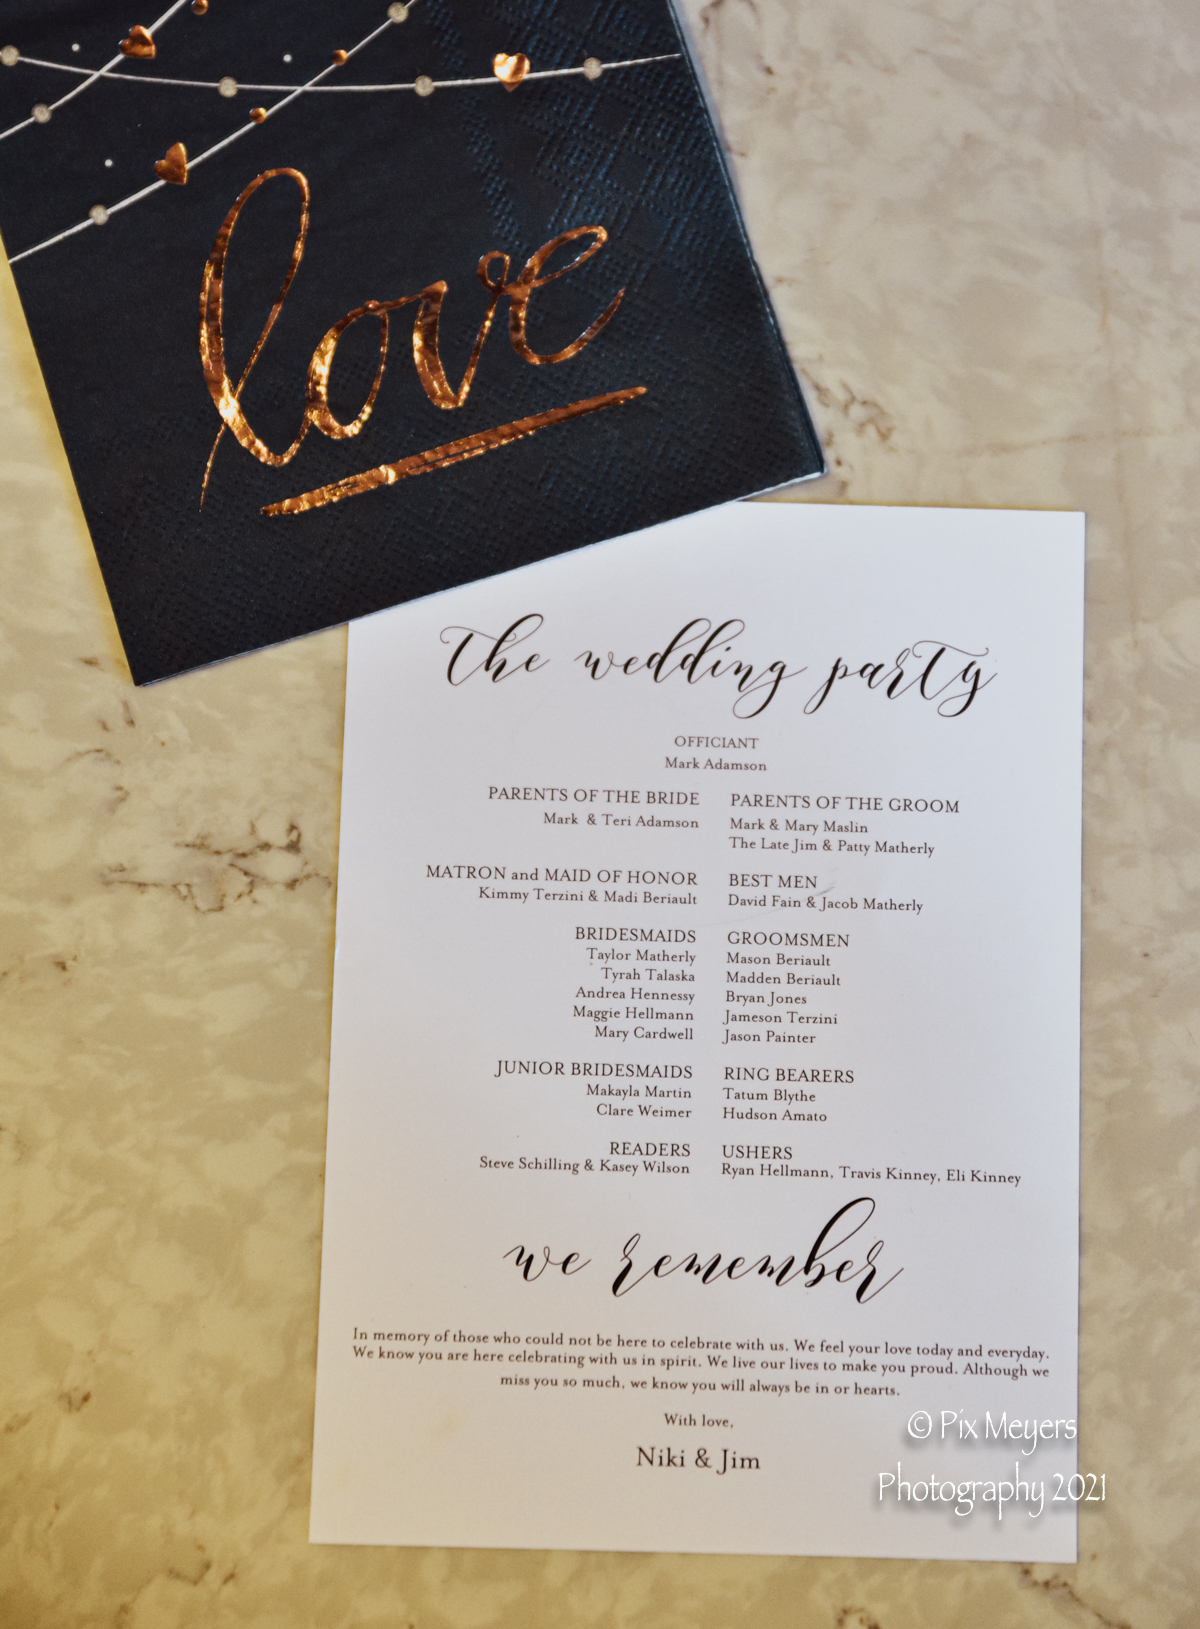 love
the wedding party
OFFICIANT
Mark Adamson
PARENTS OF THE BRIDE
Mark & Teri Adamson
PARENTS OF THE GROOM
Mark & Mary Maslin
The Late Jim & Patty Matherly
MATRON and MAID OF HONOR
Kimmy Terzini & Madi Beriault
BEST MEN
David Fain & Jacob Matherly
BRIDESMAIDS
Taylor Matherly
Tyrah Talaska
Andrea Hennessy
Maggie Hellmann
Mary Cardwell
GROOMSMEN
Mason Beriault
Madden Beriault
Bryan Jones
Jameson Terzini
Jason Painter
JUNIOR BRIDESMAIDS
Makayla Martin
Clare Weimer
RING BEARERS
Tatum Blythe
Hudson Amato
READERS
Steve Schilling & Kasey Wilson
USHERS
Ryan Hellmann, Travis Kinney, Eli Kinney
we remember
In memory of those who could not be here to celebrate with us. We feel your love today and everyday.
We know you are here celebrating with us in spirit. We live our lives to make you proud. Although we
miss you so much, we know you will always be in or hearts.
With love,
Niki & Jim
© Pix Meyers
Photography 2021